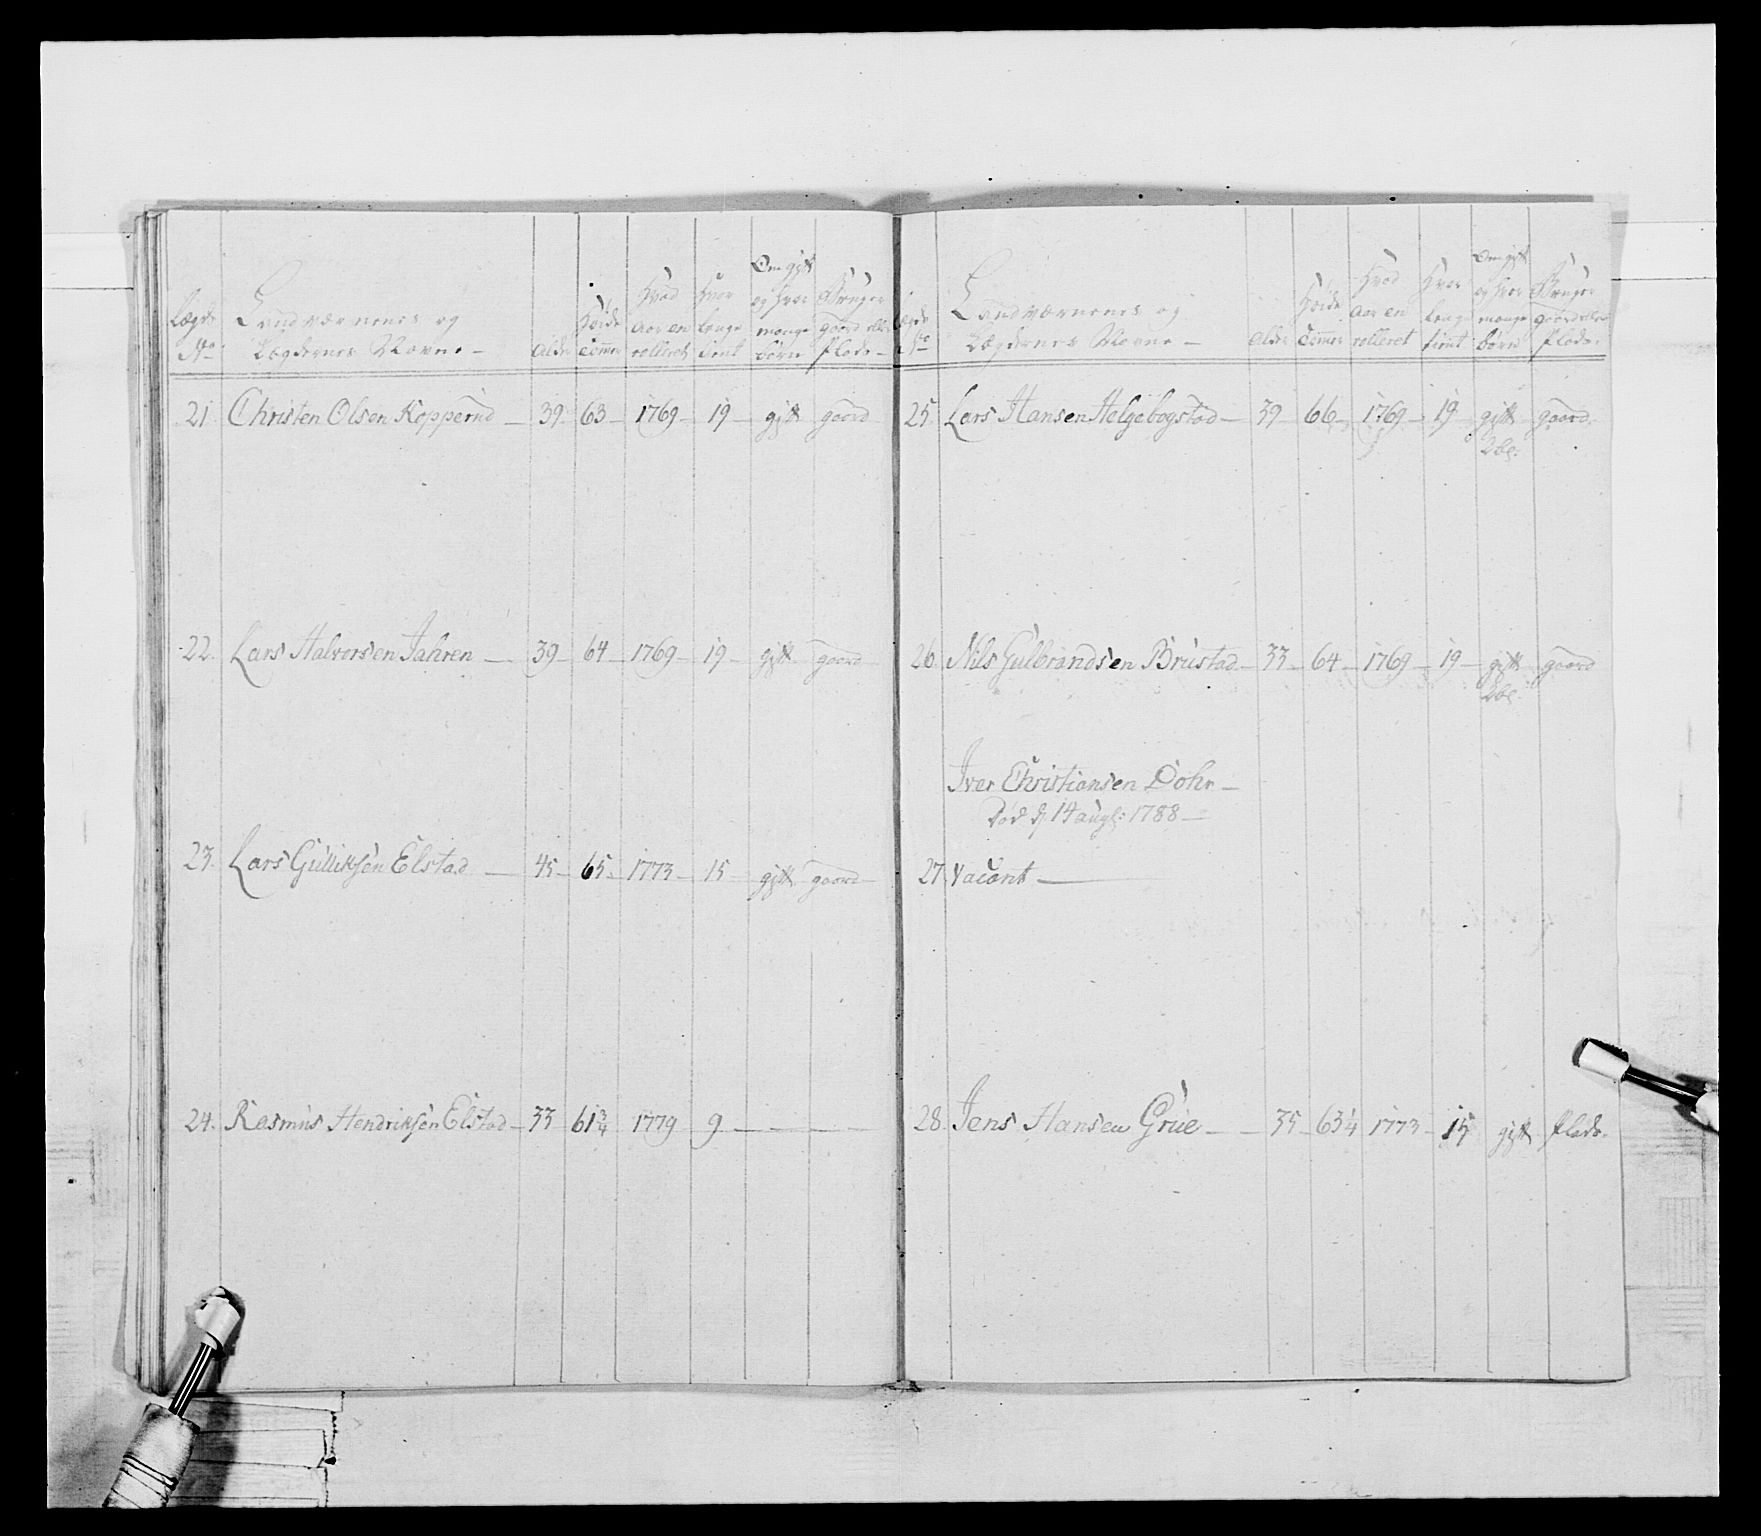 Lægds No
Landværnenes og Lægdernes Navne -
Alder
Høide Tommer
Hvad Aar en rolleret
Hvor lenge tient
Om gift og hvor mange børn
Bruger gaard eller Plads -
21. Christen Olsen Kopperud - 39 - 63 - 1769 - 19 - gift gaard
22. Lars Halvorsen Jahren - 39 - 64 - 1769 - 19 - gift gaard
23. Lars Gulliksen Elstad - 45 - 65 - 1773 - 15 - gift gaard
24. Rasmus Hendriksen Elstad - 33 61 3/4 1779 9 - - -
Lægds No
Landværnenes og Lægdernes Navne -
Alder
Høide Tommer
Hvad Aar en rolleret
Hvor lenge tient
Om gift og hvor mange børn
Bruger gaard eller Plads.
25. Lars Hansen Helgebogstad - 39 - 66 - 1769 - 19 - gift gaard
2 bø:
26. Nils Gulbrandsen Brustad - 33 - 64 - 1769 - 19 - gift gaard
2 bø:
Iver Christiansen Dohr -
død d 14 augs: 1788 -
27. Vacant -
28. Jens Hansen Grue - 35 - 63 1/4 1773 - 15 gift Plads.